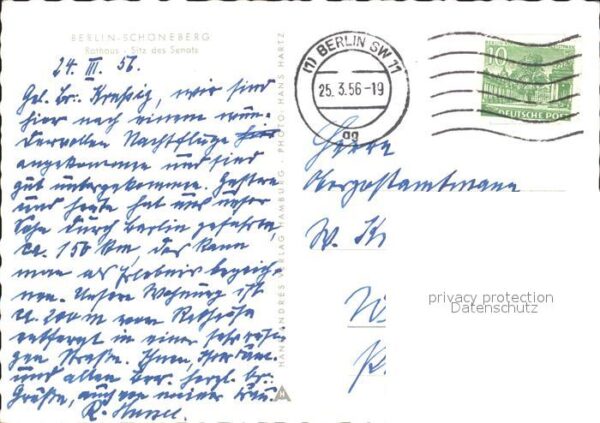 BERLIN-SCHÖNEBERG
Rathaus · Sitz des Senats
24. III. 56.
wir sind
hier nach einem wun-
dervollen Nachtfluge
angekommen und sind
gut untergekommen. Gestern
und heute hat uns unser
Sohn durch Berlin gefahren
ca. 150 km, das kann
man als Erlebnis bezeich-
nen. Unsere Wohnung ist
ca. 200 m vom
entfernt in einer sehr
gen Straße. Ihnen,
und allen herzl.
Grüße, auch von meiner Frau.
R.
HANS ANDRES VERLAG HAMBURG · PHOTO: HANS HARTZ
(1) BERLIN SW 11
25.3.56-19
gg
10
DEUTSCHE POST
Herrn
Oberpostamtmann
W. K
privacy protection
Datenschutz